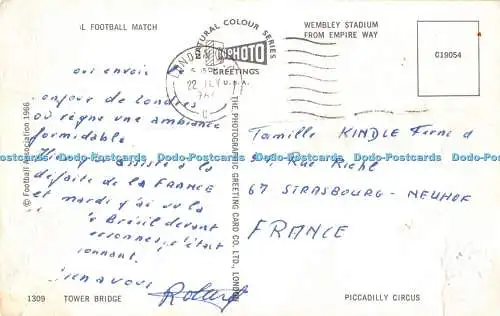 L FOOTBALL MATCH
NATURAL COLOUR SERIES
PHOTO
GREETINGS
WEMBLEY STADIUM
FROM EMPIRE WAY
G19054
LONDON
22 JLY
© Football Association 1966
THE PHOTOGRAPHIC GREETING CARD CO. LTD., LONDON
oui envoie
de Londres
où règne une ambiance
formidable
assisté à la
défaite de la FRANCE
et mardi j'ai vu le
Brésil devant
c'était
Famille KINDLE Fern d
Rue Riehl
67 STRASBOURG - NEUHOF
FRANCE
Dodo-Postcards Dodo-Postcards Dodo-Postcards Dodo-Postcards Dodo-Postcards
Dodo-Postcards Dodo-Postcards Dodo-Postcards Dodo-Postcards Dodo-Postcards
1309 TOWER BRIDGE
PICCADILLY CIRCUS